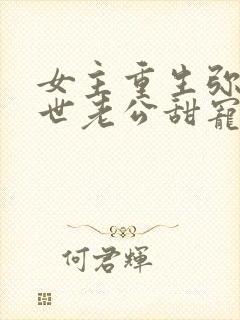 女主重生弥
世老公甜寵
何君輝